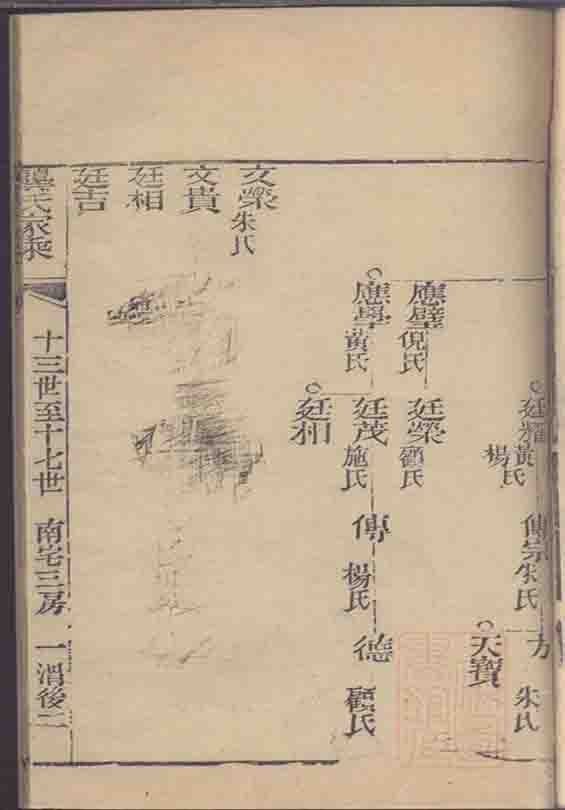 廷耀
黃氏
楊氏
傳宗
朱氏
方
朱氏
天寶
應璧
倪氏
廷榮
顧氏
應學
黃氏
廷茂
施氏
傳
楊氏
德
顧氏
廷相
文榮
朱氏
文貴
廷相
廷吉
龔氏家乘
十三世至十七世 南宅三房 一湄後二